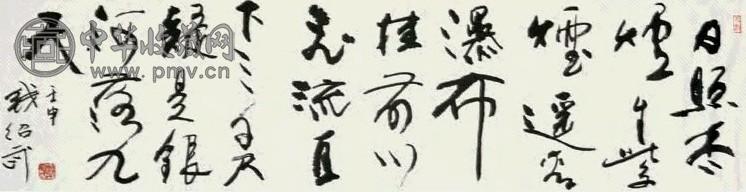 日照香
爐生紫
煙遥看
瀑布
挂前川
飞流直
下三千尺
疑是銀
河落九
天
壬申
钱绍武
中华收藏网
www.pmv.cn